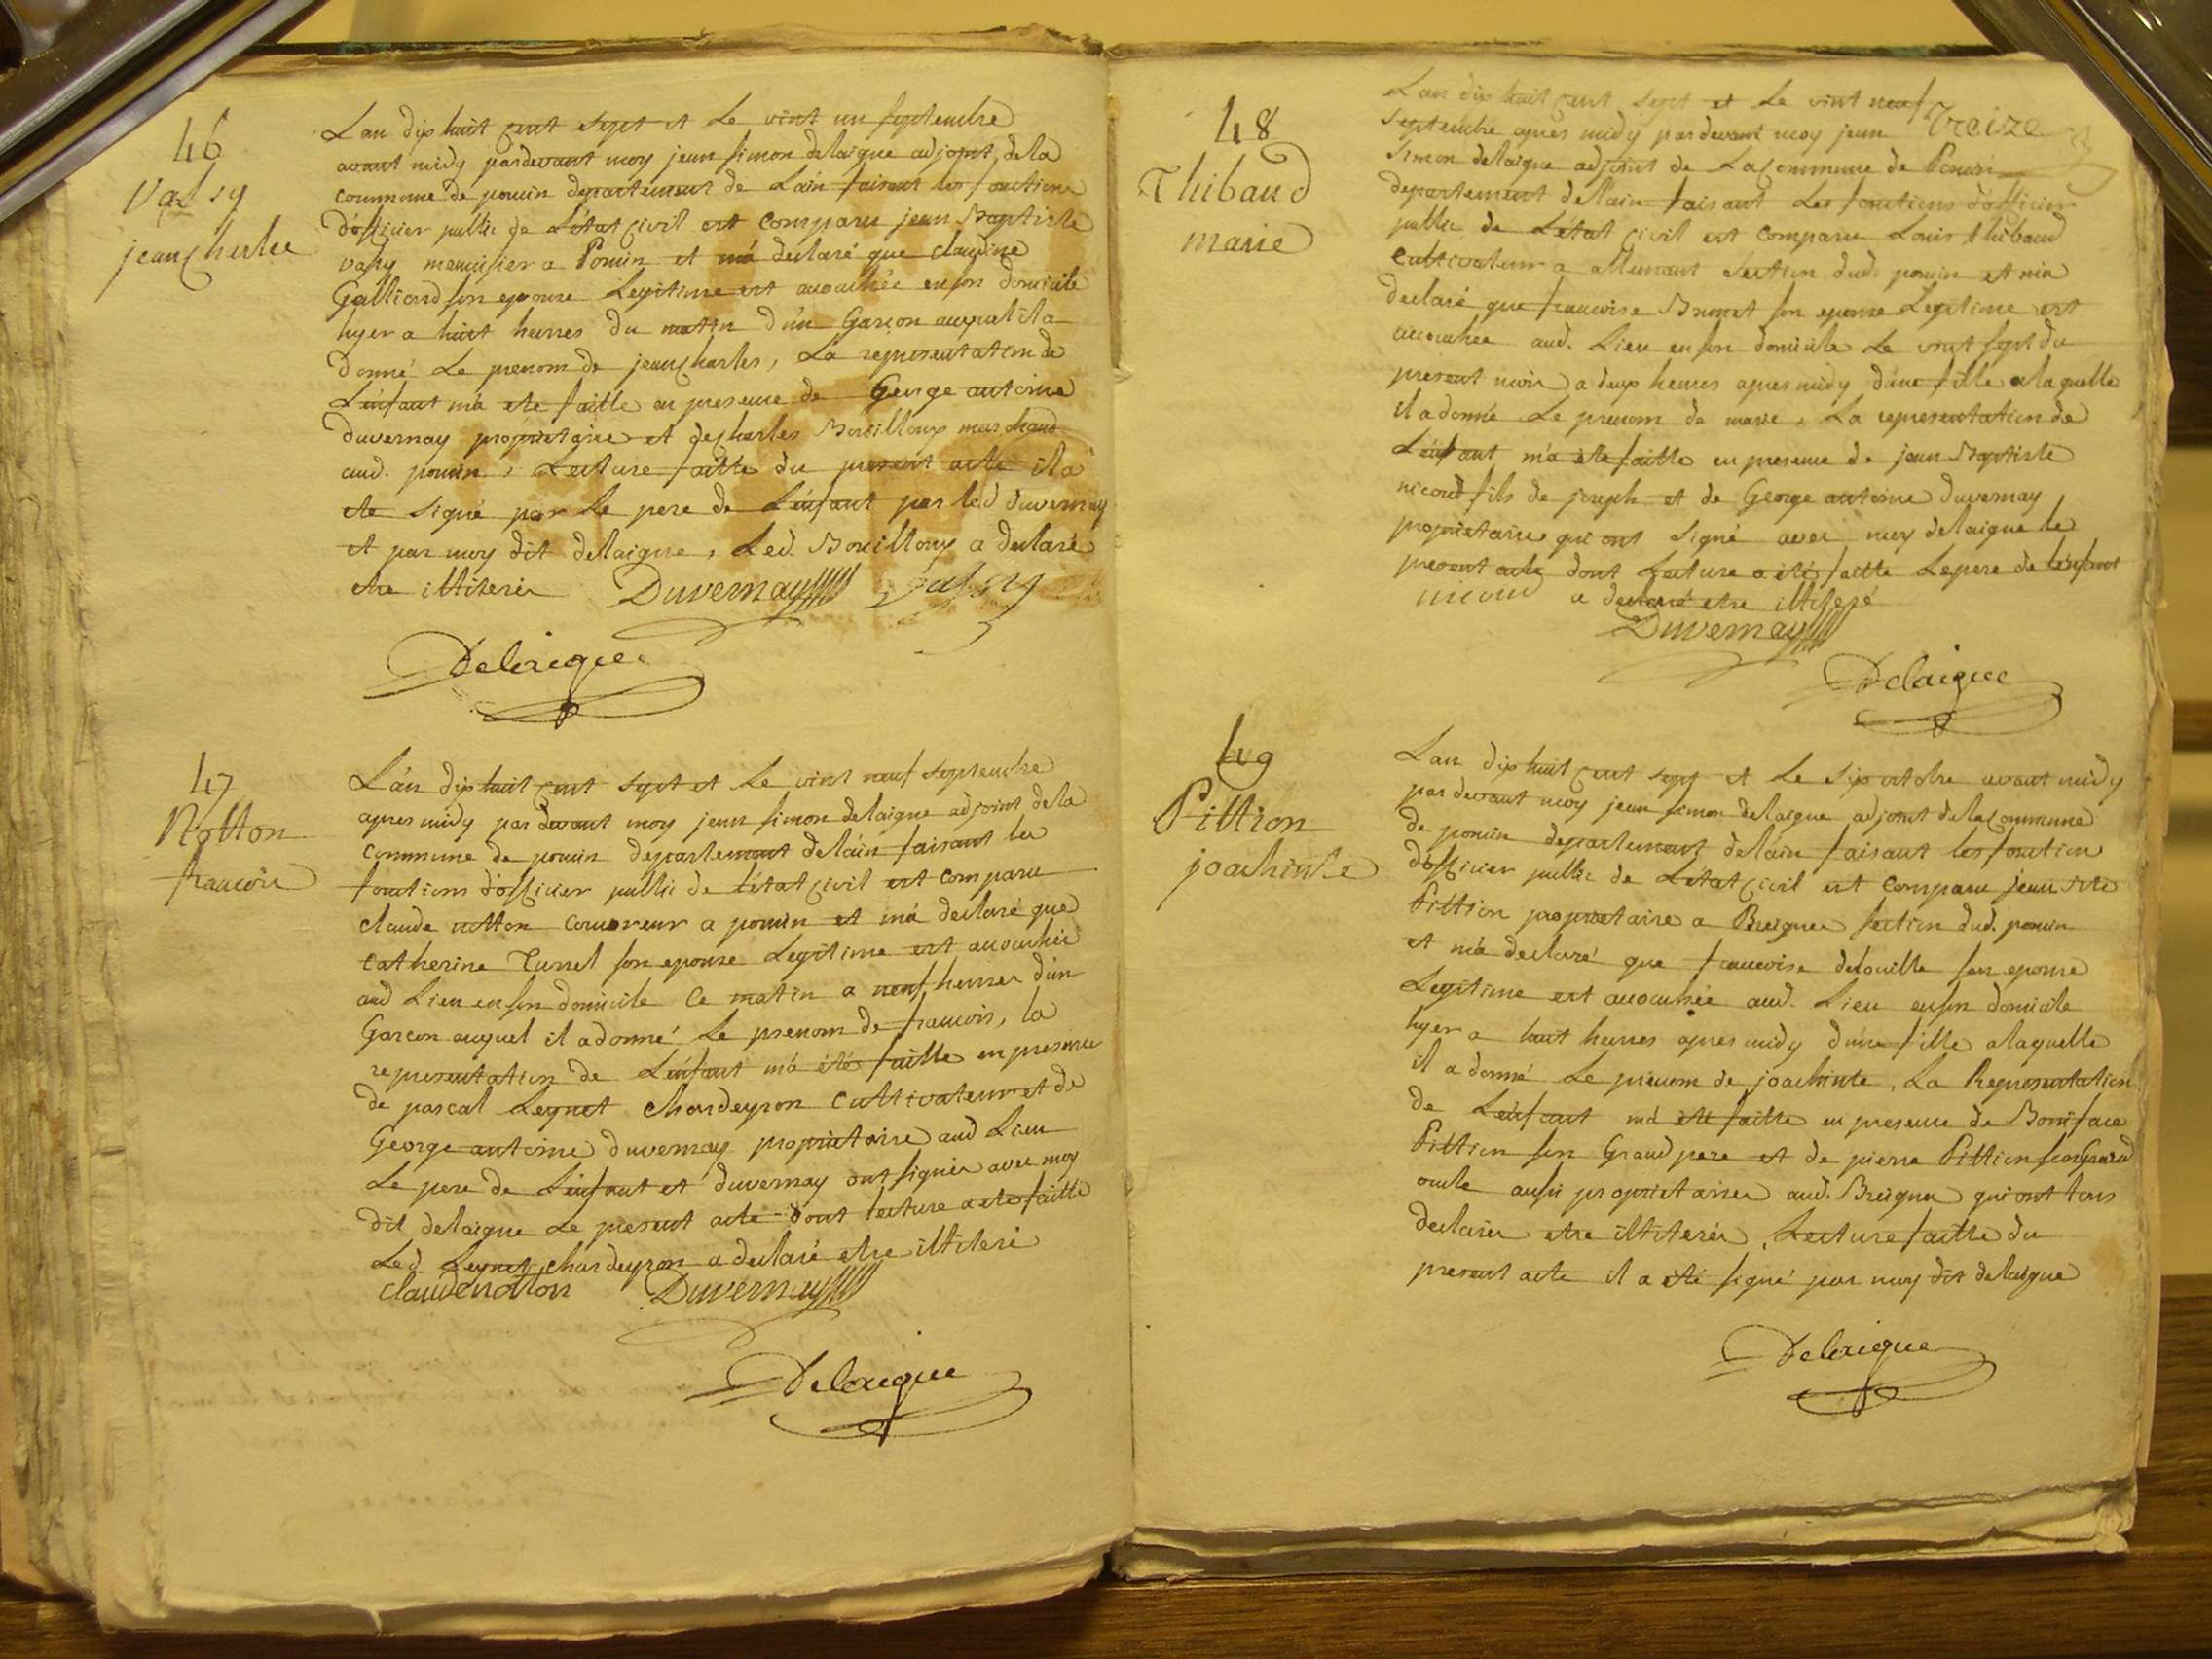 46
Vassy
jean Charles
Lan dix huit cent sept et Le vint un septembre
avant midy pardevant moy jean simon delaigue adjoint de la
commune de poncin departement de Lain faisant les fonctions
d'officier public de L'état civil est comparu jean Baptiste
vassy menuisier a Poncin et má declaré que claudine
Galliand son epouse Legitime est accouchée en son domicile
hyer a huit heures du matin d'un Garcon auquel il a
donné Le prenom de jean Charles, La representation de
L'énfant má ete faitte en presence de George antoine
Duvernay propriétaire et de Charles Bouilloux marchand
aud. poncin, Lecture faitte du present acte il a
ete signé par Le pere de L'énfant par led duvernay
et par moy dit delaigue, Led. Bouilloux a declaré
etre illiteré Duvernay Vassy
Delaigue
47
Notton
francois
L'an dix huit cent sept et Le vint neuf septembre
apres midy par devant moy jean simon delaigue adjoint de la
commune de poncin departement de láin faisant les
fonctions d'officier public de l'état civil est comparu
claude notton couvreur a poncin et má declaré que
catherine Turrel son epouse Legitime est accouchée
aud Lieu en son domicile Ce matin a neuf heures d'un
Garcon auquel il a donné Le prenom de francois, la
representation de L'énfant má été faitte en presence
de pascal Leynet Chardeyron Cultivateur et de
George antoine duvernay propriétaire aud Lieu
Le pere de L'énfant et duvernay ont signés avec moy
dit delaigue Le present acte dont lecture a ete faitte
Led. Leynet chardeyron a declaré etre illiteré
claude notton Duvernay
Delaigue
48
Thibaud
marie
Lan dix huit cent sept et Le vint neuf Treize
septembre apres midy par devant moy jean
simon delaigue adjoint de La Commune de Poncin
departement de lain faisant Les fonctions d'officier
public de L'état civil est comparu Louis thibaud
cultivateur a allement Section dud. poncin et má
declaré que francoise Brunet son epouse Legitime est
accouchée aud. Lieu en son domicile Le vint sept du
present mois a deux heures apres midy d'une fille a laquelle
il a donnée Le prenom de marie, La representation de
L'énfant má ete faitte en presence de jean Baptiste
nicoud fils de joseph et de George antoine duvernay
propriétaire qui ont signé avec moy delaigue le
present acte dont Lecture a été faitte Le pere de lénfant
nicoud a declaré etre illiteré
Duvernay
Delaigue
49
Pittion
joachinte
Lan dix huit cent sept et Le six octobre avant midy
par devant moy jean simon delaigue adjoint de la Commune
de poncin departement de lain faisant les fonction
d'officier public de L'état civil est comparu jean
Pittion propriétaire a Breignes section dud. poncin
et má declaré que francoise delouille son epouse
Legitime est accouchée aud. Lieu en son domicile
hyer a huit heures apres midy d'une fille a laquelle
il a donné Le prénom de joachinte, La Representation
de L'énfant má été faitte en presence de Boniface
Pittion son Grand pere et de pierre Pittion son Grand
oncle aussi propriétaires aud. Breignes qui ont tous
declarés etre illiterés, Lecture faitte du
present acte il a été signé par moy dit delaigue
Delaigue